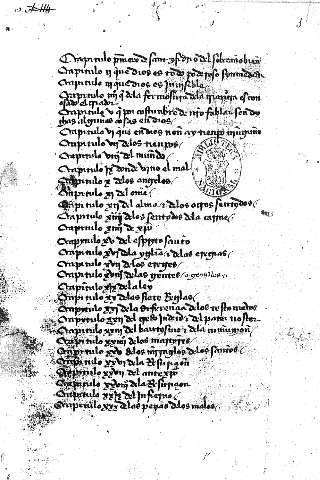 Capitulo primero de sant ysidro del soberano bien
Capitulo ii que dios es todo poderoso
Capitulo iii que dios es invisible
Capitulo iiii que dela fermosura dela criatura es con
osçido el criador
Capitulo v que por costunbre de nro fablar son di
chas algunas cosas en dios
Capitulo vi que en dios non ay tienpo ninguno
Capitulo vii delos tienpos
Capitulo viii del mundo
Capitulo ix donde vino el mal
Capitulo x delos angeles
Capitulo xi del ome
Capitulo xii del alma & delos otros sentydos
Capitulo xiii delos sentydos dela carne
Capitulo xiiii de xpo
Capitulo xv del espiritu santo
Capitulo xvi dela yglesia & delas eregias
Capitulo xvii delos ereges
Capitulo xviii delos gentiles o gentiles
Capitulo xix dela ley
Capitulo xx delas siete Reglas
Capitulo xxi dela diferençia delos testamentos
Capitulo xxii del credo in deo & del pater noster
Capitulo xxiii del bautismo & dela comunion
Capitulo xxiiii delos martyres
Capitulo xxv delos myraglos delos santos
Capitulo xxvi dela Resureçion
Capitulo xxvii del antexpo
Capitulo xxviii dela Resureçion
Capitulo xxix del infierno
Capitulo xxx delas penas delos malos
BIBLIOTECA NACIONAL